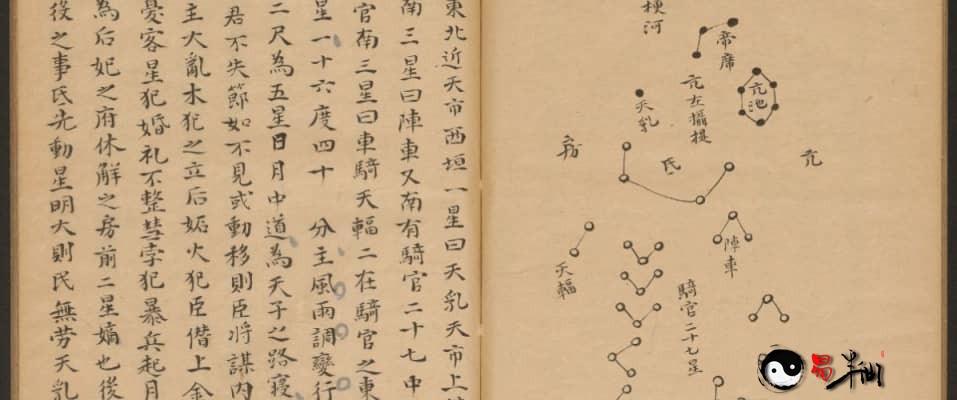 東北近天市西垣一星曰天乳天市上
南三星曰陣車又南有騎官二十七中
官南三星曰車騎天輻二在騎官之東
星一十六度四十 分主風雨調變行
二尺為五星日月中道為天子之路寢
君不失節如不見或動移則臣將謀內
主大亂木犯之立后妬火犯臣僭上金
憂客星犯婚礼不整彗孛犯暴兵起月
為后妃之府休解之房前二星嫡也後
後之事氐先動星明大則民無劳天乳
梗河
帝席
亢池
亢左攝提
天乳
亢
氐
房
陣車
天輻
騎官二十七星
易